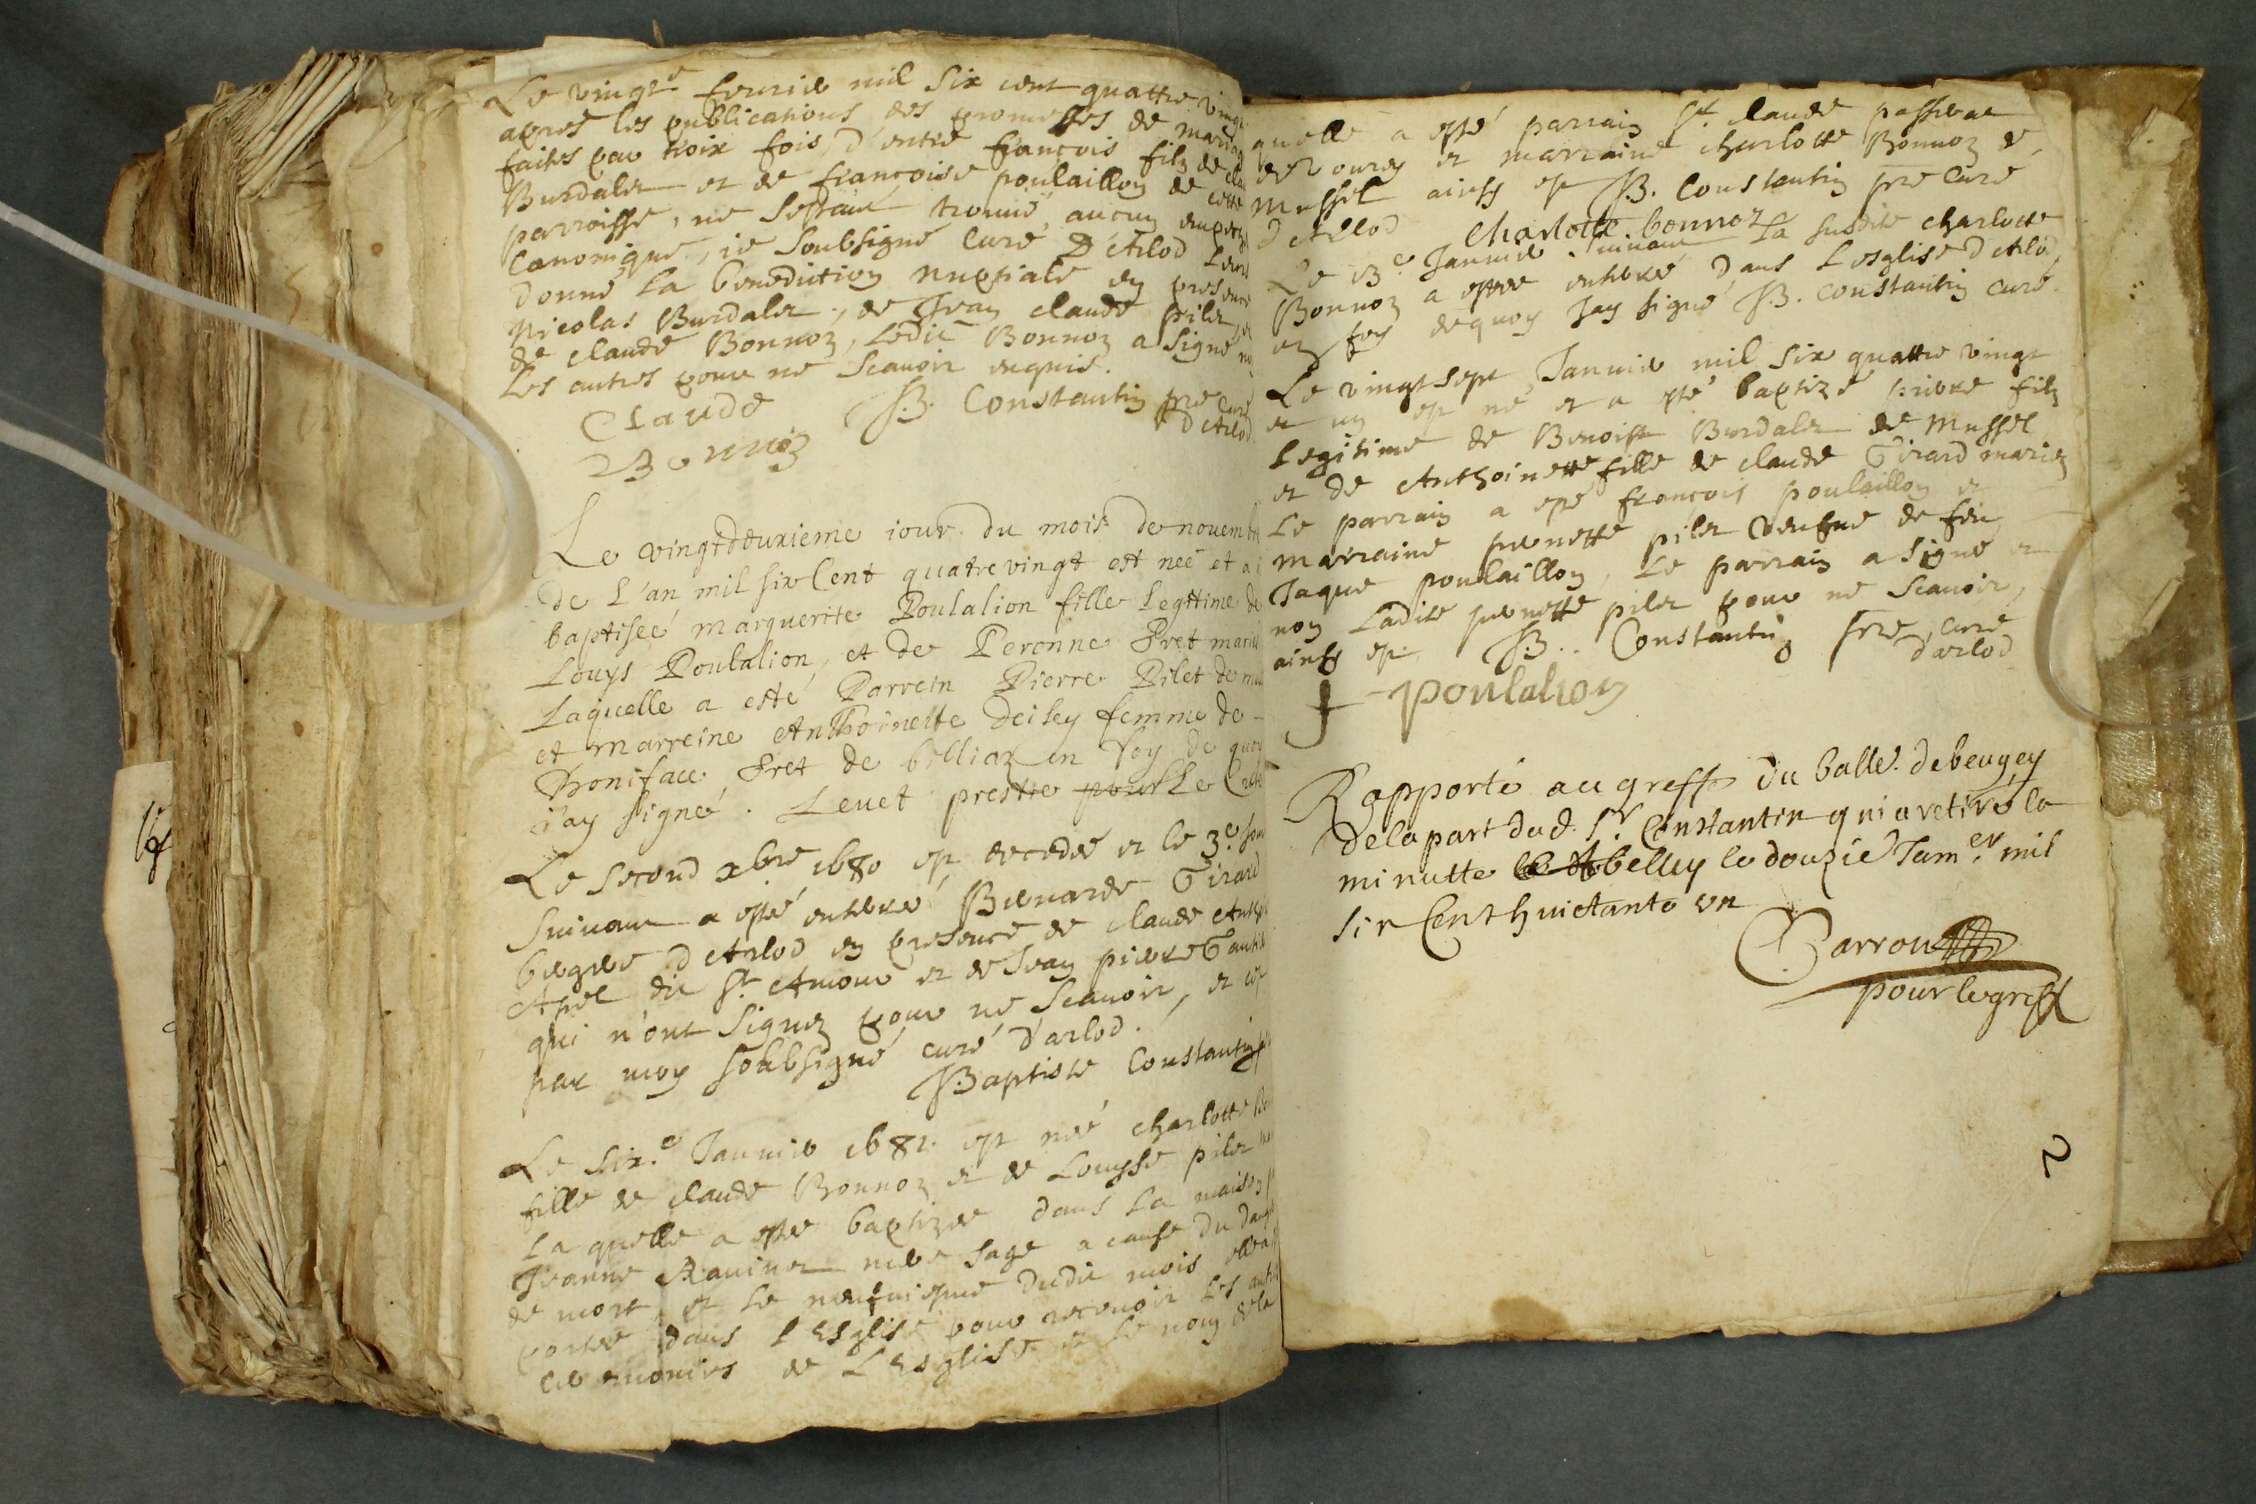 Le vingt.e feurier mil six cent quattre vingt
apres les publications des promesses de mariag
faites par troix fois, d'entre françois filz de cla
Burdalet et de françoise poulaillon de cette
parroisse, ne sestant trouué aucun empech
Canonique, ie soubsigné curé D'Arlod leur
donné la benediction nuptiale en presence
Nicolas Burdalet, de Jean claude pilet, et
de claude Bonnoz, ledit Bonnoz a signé no
les autres pour ne scauoir enquis.
Claude Bonnoz
JB. Constantin pre curé
d'Arlod
Le vingtdeuxieme iour du mois de nouemb
de l'an mil six Cent quatre vingt est née et a
baptiseé marguerite Poulalion fille legitime de
Louys Poulalion, et de Peronne Fret marié
Laquelle a esté Parrein Pierre Pilet de mu
et marreine Anthoinette Deiley femme de
Boniface Fret de billiaz en foy de quoy
i'ay signé. Leuet prestre pour le Curé
Le second xbre 1680 est decedée et le 3.e jour
suiuant a esté enterré Bernarde Girard
bergere d'Arlod en presence de claude Anth
Apel dit St Amour et de Jean pierre Gaut
qui n'ont signez pour ne scauoir, et est
par moy soubsigné curé d'arlod.
JBaptiste Constantin
Le six.e Januier 1681. est née charlotte Bo
fille de claude Bonnoz et de Louysse pilet
la quelle a estée baptizée dans la maison
Jeanne Rauinet mere sage a cause du dang
de mort, et le neufuiesme dudit mois elle a
portée dans l'Esglise pour receuoir les aut
ceremonies de l'Esglise et le nom de la
quelle a esté parrain St. claude passerat
de Vouray et marraine charlotte Bonnoz de
Mussel ainsy est JB. Constantin pre curé
d'Arlod
Charlotte bonnoz
Le 13.e Januier suiuant la susdite charlotte
Bonnoz a estée enterré dans l'esglise d'Arlo
en foy dequoy jay signé JB. constantin curé.
Le vingt sept Januier mil six quattre vingt
et un est né et a esté baptizé pierre filz
legitime de Benoist Burdalet de Mussel
et de Anthoinette fille de claude Girard mariez
le parrain a esté françois poulaillon et
marraine pernette pilet veufue de feu
Jaque poulaillon, le parrain a signé et
non ladite pernette pilet pour ne scauoir,
ainsy est JB. Constantin pre, curé
d'arlod
f poulalion
Rapporté au greffe du balle. de beugey
de la part dud. Sr Constantin qui a retiré la
minutte a belley le douzie Jam.er mil
six Cent huictante un
Carron
pour le greff
2